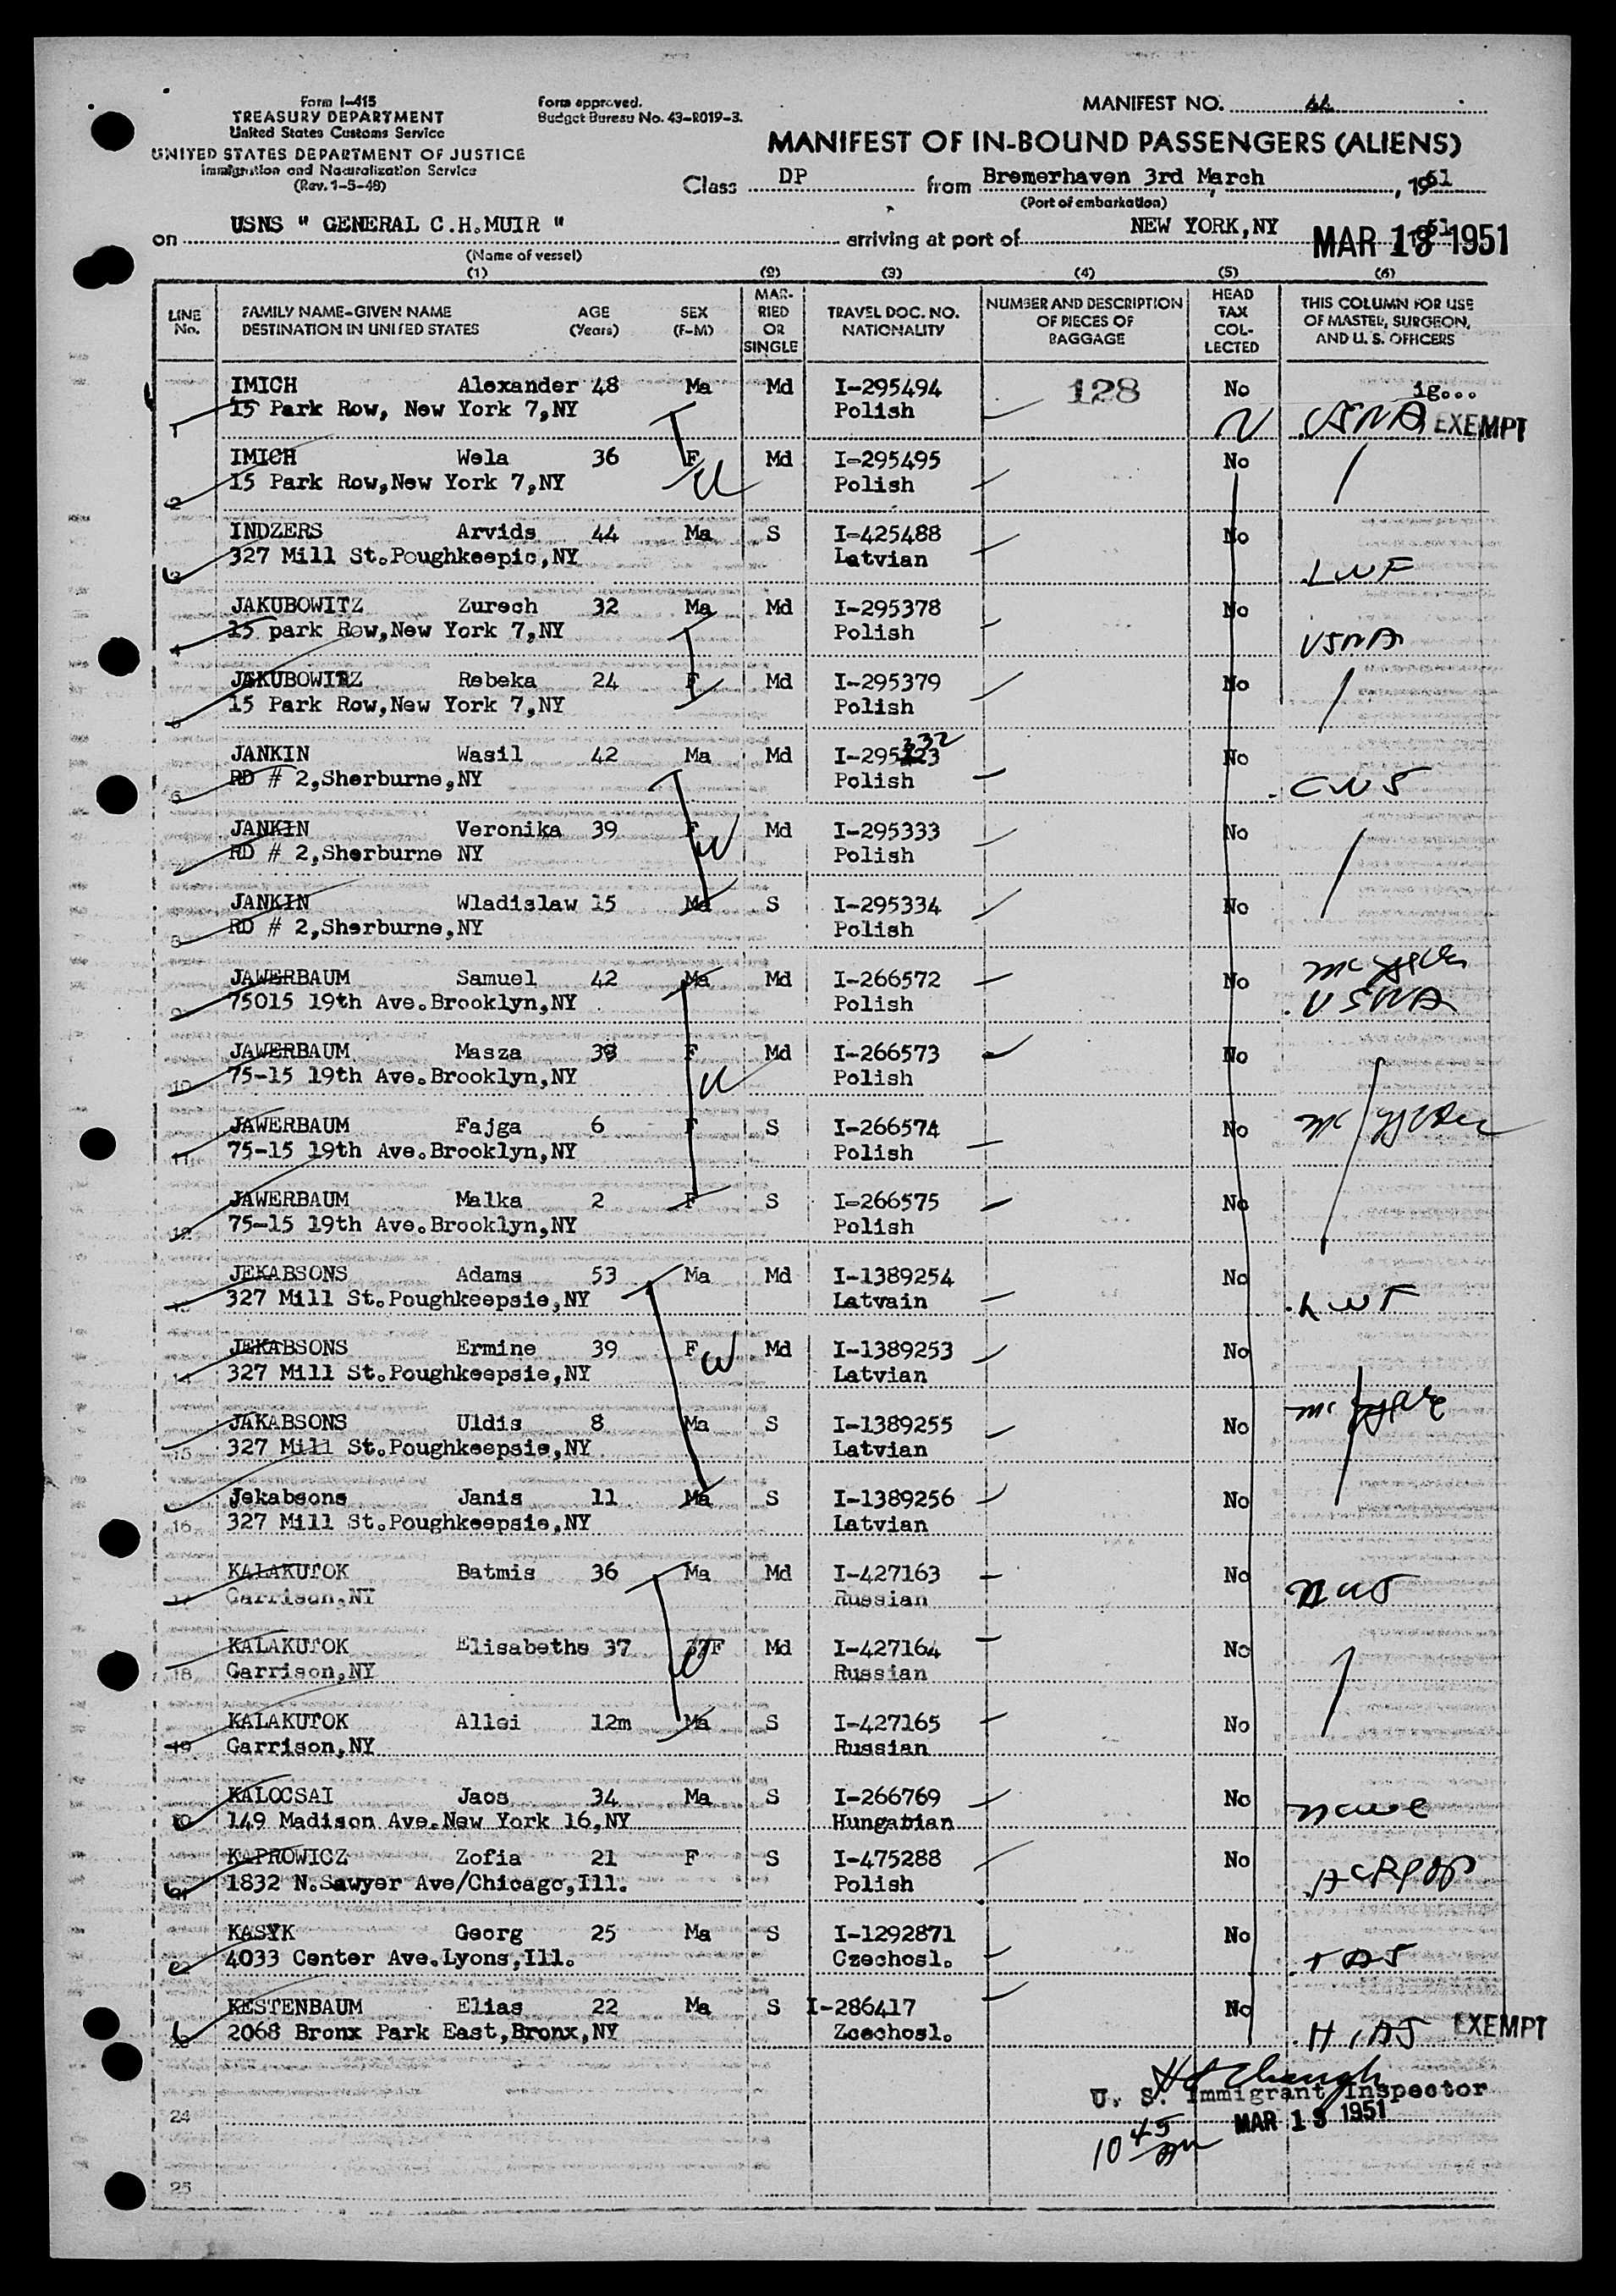 Form I-415
TREASURY DEPARTMENT
United States Customs Service
UNITED STATES DEPARTMENT OF JUSTICE
Immigration and Naturalization Service
(Rev. 1-5-48)
Form approved.
Budget Bureau No. 43-R019-3.
MANIFEST NO.
MANIFEST OF IN-BOUND PASSENGERS (ALIENS)
Class DP from Bremerhaven 3rd March, 1951
(Port of embarkation)
on USNS " GENERAL C.H.MUIR " arriving at port of NEW YORK,NY MAR 13 1951
(Name of vessel)
(1) (2) (3) (4) (5) (6)
LINE No. FAMILY NAME-GIVEN NAME DESTINATION IN UNITED STATES AGE (Years) SEX (F-M) MARRIED OR SINGLE TRAVEL DOC. NO. NATIONALITY NUMBER AND DESCRIPTION OF PIECES OF BAGGAGE HEAD TAX COLLECTED THIS COLUMN FOR USE OF MASTER, SURGEON, AND U. S. OFFICERS
IMICH Alexander 48 Ma Md I-295494 128 No ig...
1 15 Park Row, New York 7,NY Polish USNA EXEMPT
IMICH Wela 36 F Md I-295495 No
2 15 Park Row,New York 7,NY Polish
INDZERS Arvids 44 Ma S I-425488 No
3 327 Mill St.Poughkeepic,NY Latvian LWF
JAKUBOWITZ Zurech 32 Ma Md I-295378 No
4 15 park Row,New York 7,NY Polish USNA
JAKUBOWITZ Rebeka 24 F Md I-295379 No
5 15 Park Row,New York 7,NY Polish
JANKIN Wasil 42 Ma Md I-295332 No
6 RD # 2,Sherburne,NY Polish CWS
JANKIN Veronika 39 F Md I-295333 No
7 RD # 2,Sherburne NY Polish
JANKIN Wladislaw 15 Ma S I-295334 No
8 RD # 2,Sherburne,NY Polish
JAWERBAUM Samuel 42 Ma Md I-266572 No
9 75015 19th Ave.Brooklyn,NY Polish USNA
JAWERBAUM Masza 38 F Md I-266573 No
10 75-15 19th Ave.Brooklyn,NY Polish
JAWERBAUM Fajga 6 F S I-266574 No
11 75-15 19th Ave.Brooklyn,NY Polish
JAWERBAUM Malka 2 F S I-266575 No
12 75-15 19th Ave.Brooklyn,NY Polish
JEKABSONS Adams 53 Ma Md I-1389254 No
13 327 Mill St.Poughkeepsie,NY Latvain LWF
JEKABSONS Ermine 39 F Md I-1389253 No
14 327 Mill St.Poughkeepsie,NY Latvian
JAKABSONS Uldis 8 Ma S I-1389255 No
15 327 Mill St.Poughkeepsie,NY Latvian
Jekabsons Janis 11 Ma S I-1389256 No
16 327 Mill St.Poughkeepsie,NY Latvian
KALAKUTOK Batmis 36 Ma Md I-427163 No
17 Garrison,NY Russian
KALAKUTOK Elisabeths 37 F Md I-427164 No
18 Garrison,NY Russian
KALAKUTOK Allei 12m Ma S I-427165 No
19 Garrison,NY Russian
KALOCSAI Jaos 34 Ma S I-266769 No
20 149 Madison Ave.New York 16,NY Hungatian NCWC
KAPROWICZ Zofia 21 F S I-475288 No
21 1832 N.Sawyer Ave/Chicago,Ill. Polish
KASYK Georg 25 Ma S I-1292871 No
4033 Center Ave.Lyons,Ill. Czechosl.
KESTENBAUM Elias 22 Ma S I-286417 No
2068 Bronx Park East,Bronx,NY Zcechosl. HIAS EXEMPT
U. S. Immigrant Inspector
24 MAR 13 1951
10 45 am
25